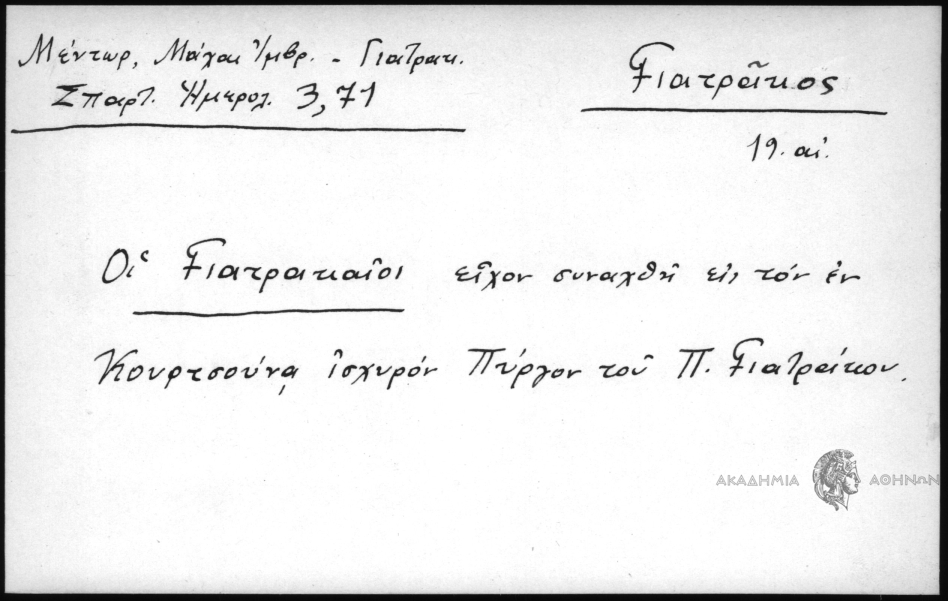 Μέντωρ, Μάχαι Ἰμβρ. - Γιατρακ.
Σπαρτ. Ἡμερολ. 3,71
Γιατρᾶκος
19. αἰ.
Οἱ Γιατρακαῖοι εἶχον συναχθῆ εἰς τόν ἐν
Κουρτσούνᾳ ἰσχυρόν Πύργον τοῦ Π. Γιατράκου.
ΑΚΑΔΗΜΙΑ ΑΘΗΝΩΝ